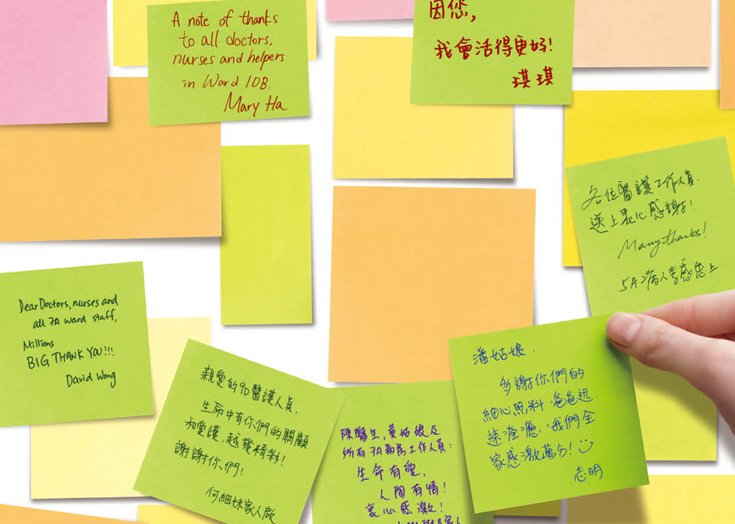 A note of thanks
to all doctors,
nurses and helpers
in Ward 10B.
Mary Ha
因您,
我會活得更好!
琪琪
各位醫護工作人員
送上衷心感謝!
Many thanks!
5A病人李感恩上
Dear Doctors, nurses and
all 7A ward staff,
Millions
BIG THANK YOU!!!
David Wong
親愛的9D醫護人員,
生命中有你們的關顧
和愛護,越發精彩!
謝謝你們!
何細妹家人啟
陳醫生,黃姑娘及
所有7A病房工作人員:
生命有愛,
人間有情!
衷心感激!
潘姑娘,
多謝你們的
細心照料,爸爸迅
速痊癒,我們全
家感激萬分!
志明